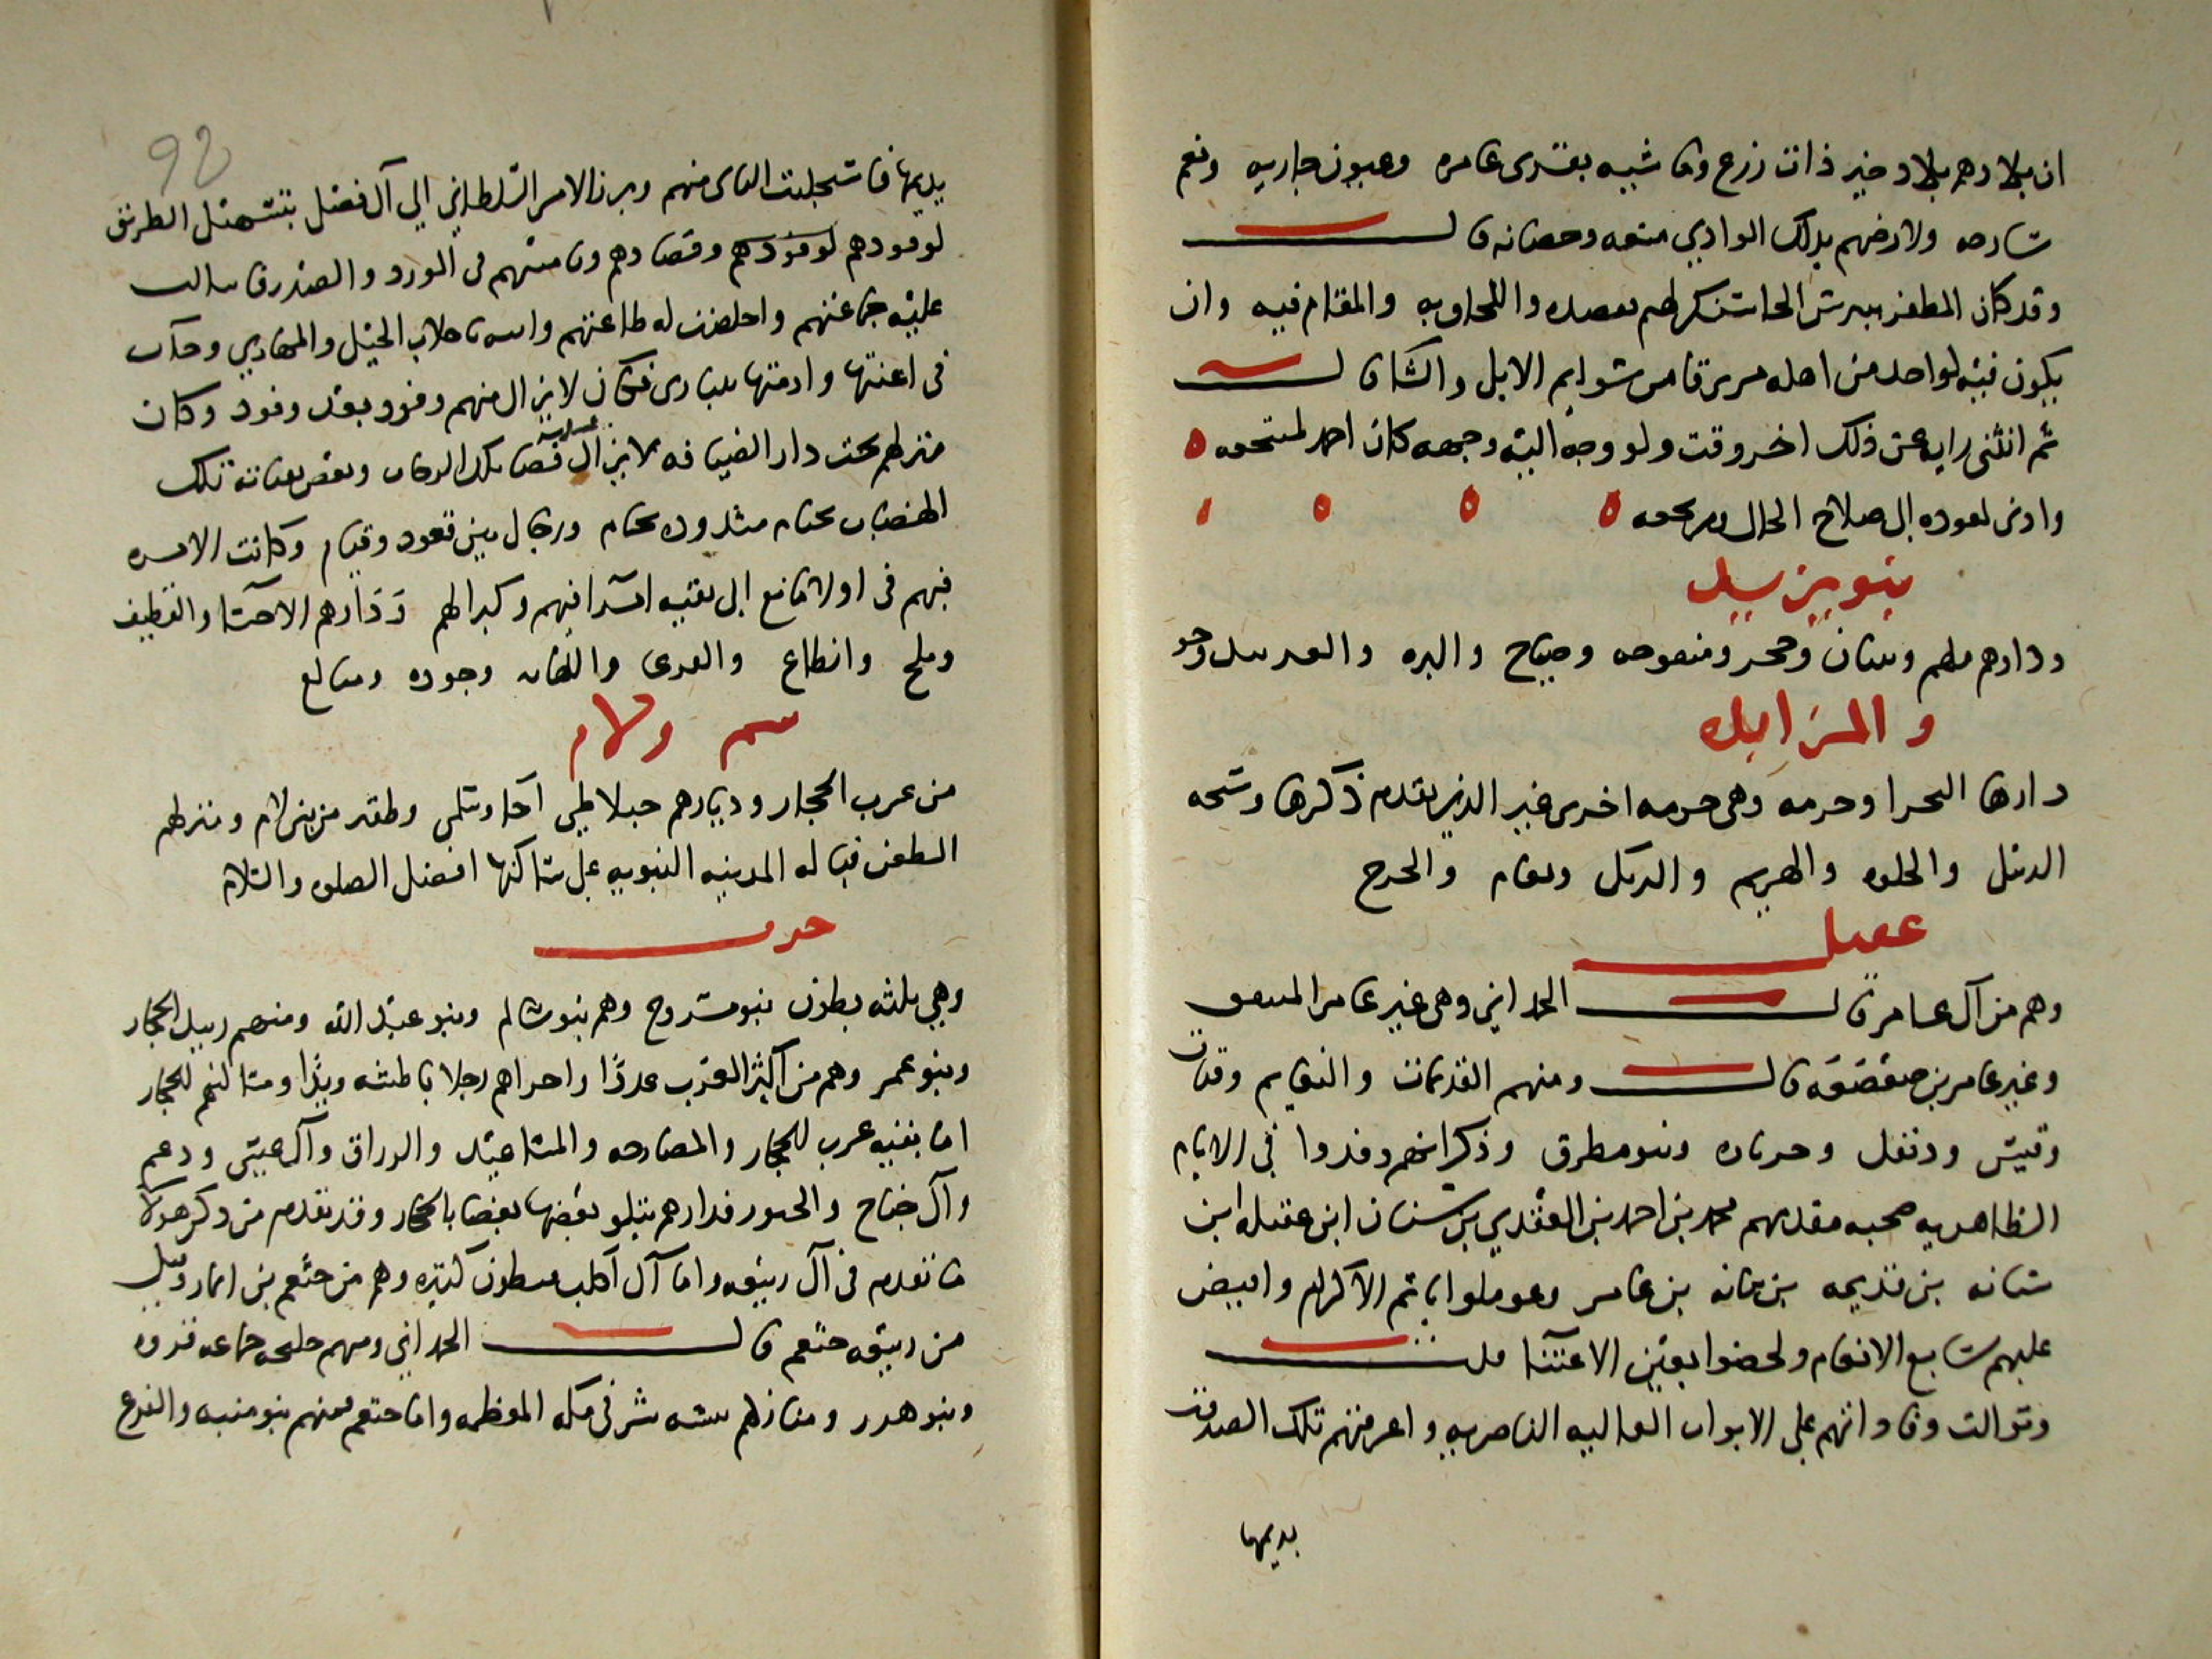 ان بلادهم بلاد خير ذات زرع وماشيه بقرى عامره وعيون جاريه ونعم
سارحه ولارضهم بذلك الوادي منعه وحصانه قال
وقد كان المظفر بيبرس الجاشنكير هم بقصده واللحاق به والمقام فيه وان
يكون فيه لواحد من اهله مرتزقا من سوايم الابل والشا قال
ثم انثنى رايه عن ذلك اخر وقت ولو وجه اليه وجهه كان احمد لمنتجعه
وادنى لعوده الى صلاح الحال ومرجعه
بنو يزيد
ودارهم ملهم وبنبان وحجر ومنفوحه وصياح والبره والعويند وجو
والمزايده
دارها البحرا وحرمه وهي حرمه اخرى غير الذي تقدم ذكرها وشيحه
الدبيل والحلوه والهريم والبريك ونعام والخرج
عقيل
وهم من آل عامر قال الحمداني وهي غير عامر المنتفق
وغير عامر بن صعصعه قال ومنهم القديمات والنعايم وقبات
وقيس ودنفل وحرثان وبنو مطرق وذكر انهم وفدوا في الايام
الظاهريه صحبه مقدمهم محمد بن احمد بن العقدي بن سنان ابن عقيله ابن
شبانه بن قديمه بن نباته بن عامر وعوملوا باتم الاكرام وافيض
عليهم سابغ الانعام ولحضوا بعين الاعتنا قال
وتوالت وفاداتهم على الابواب العاليه الناصريه واغرقتهم تلك الصدقات
بديمها
92
بديمها فاستجلبت الناى منهم وبرز الامر السلطاني الي آل فضل بتسهيل الطريق
لوفودهم لوفودهم وقصادهم وتامينهم في الورد والصدر فانثالت
عليه جماعتهم واخلصت له طاعتهم واتته باجلاب الخيل والمهاري وجآت
في اعنتها وازمتها تتبارى فكان لايزال منهم وفود بعد وفود وكان
منزلهم تحت دار الضيافه لايزال قضا تلك الرحاب وبعض بقايا تلك
الهضاب بخيام مشدوده بخيام ورجال بين قعود وقيام وكانت الامره
فيهم في اولاد مانع الى بقيه امرآئهم وكبرائهم ودارهم الاحسا والقطيف
وملح وانطاع والقرعى واللهابه وجوده ومتالع
ولام
من عرب الحجاز وديارهم جبلا طي آجا وسلمى وظفير من بني لام ومنزلهم
الظعن قباله المدينه النبويه على ساكنها افضل الصلوه والسلام
حرب
وهي ثلثه بطون بنو مسروح وهم بنو سالم وبنو عبد الله ومنهم زبيد الحجاز
وبنو عمر وهم من اكثر العرب عددا واجراهم رجلا باطشه ويدا ومساكنهم الحجاز
اما بقيه عرب الحجاز والمصارحه والمساعيد والزراق وآل عيسى ودعم
وآل جناح والجبور فدارهم يتلو بعضها بعضا بالحجاز وقد تقدم من ذكر هولا
ما تقدم في آل ربيعه واما آل اكلب فبطون كثيره وهم من خثعم بن انمار وقيل
من ربيعه خثعم قال الحمداني ومنهم جليحه جماعه قدوه
وبنو هدر ومنازلهم بيشه شرقي مكه المعظمه واما خثعم فمنهم بنو منبه والفزع